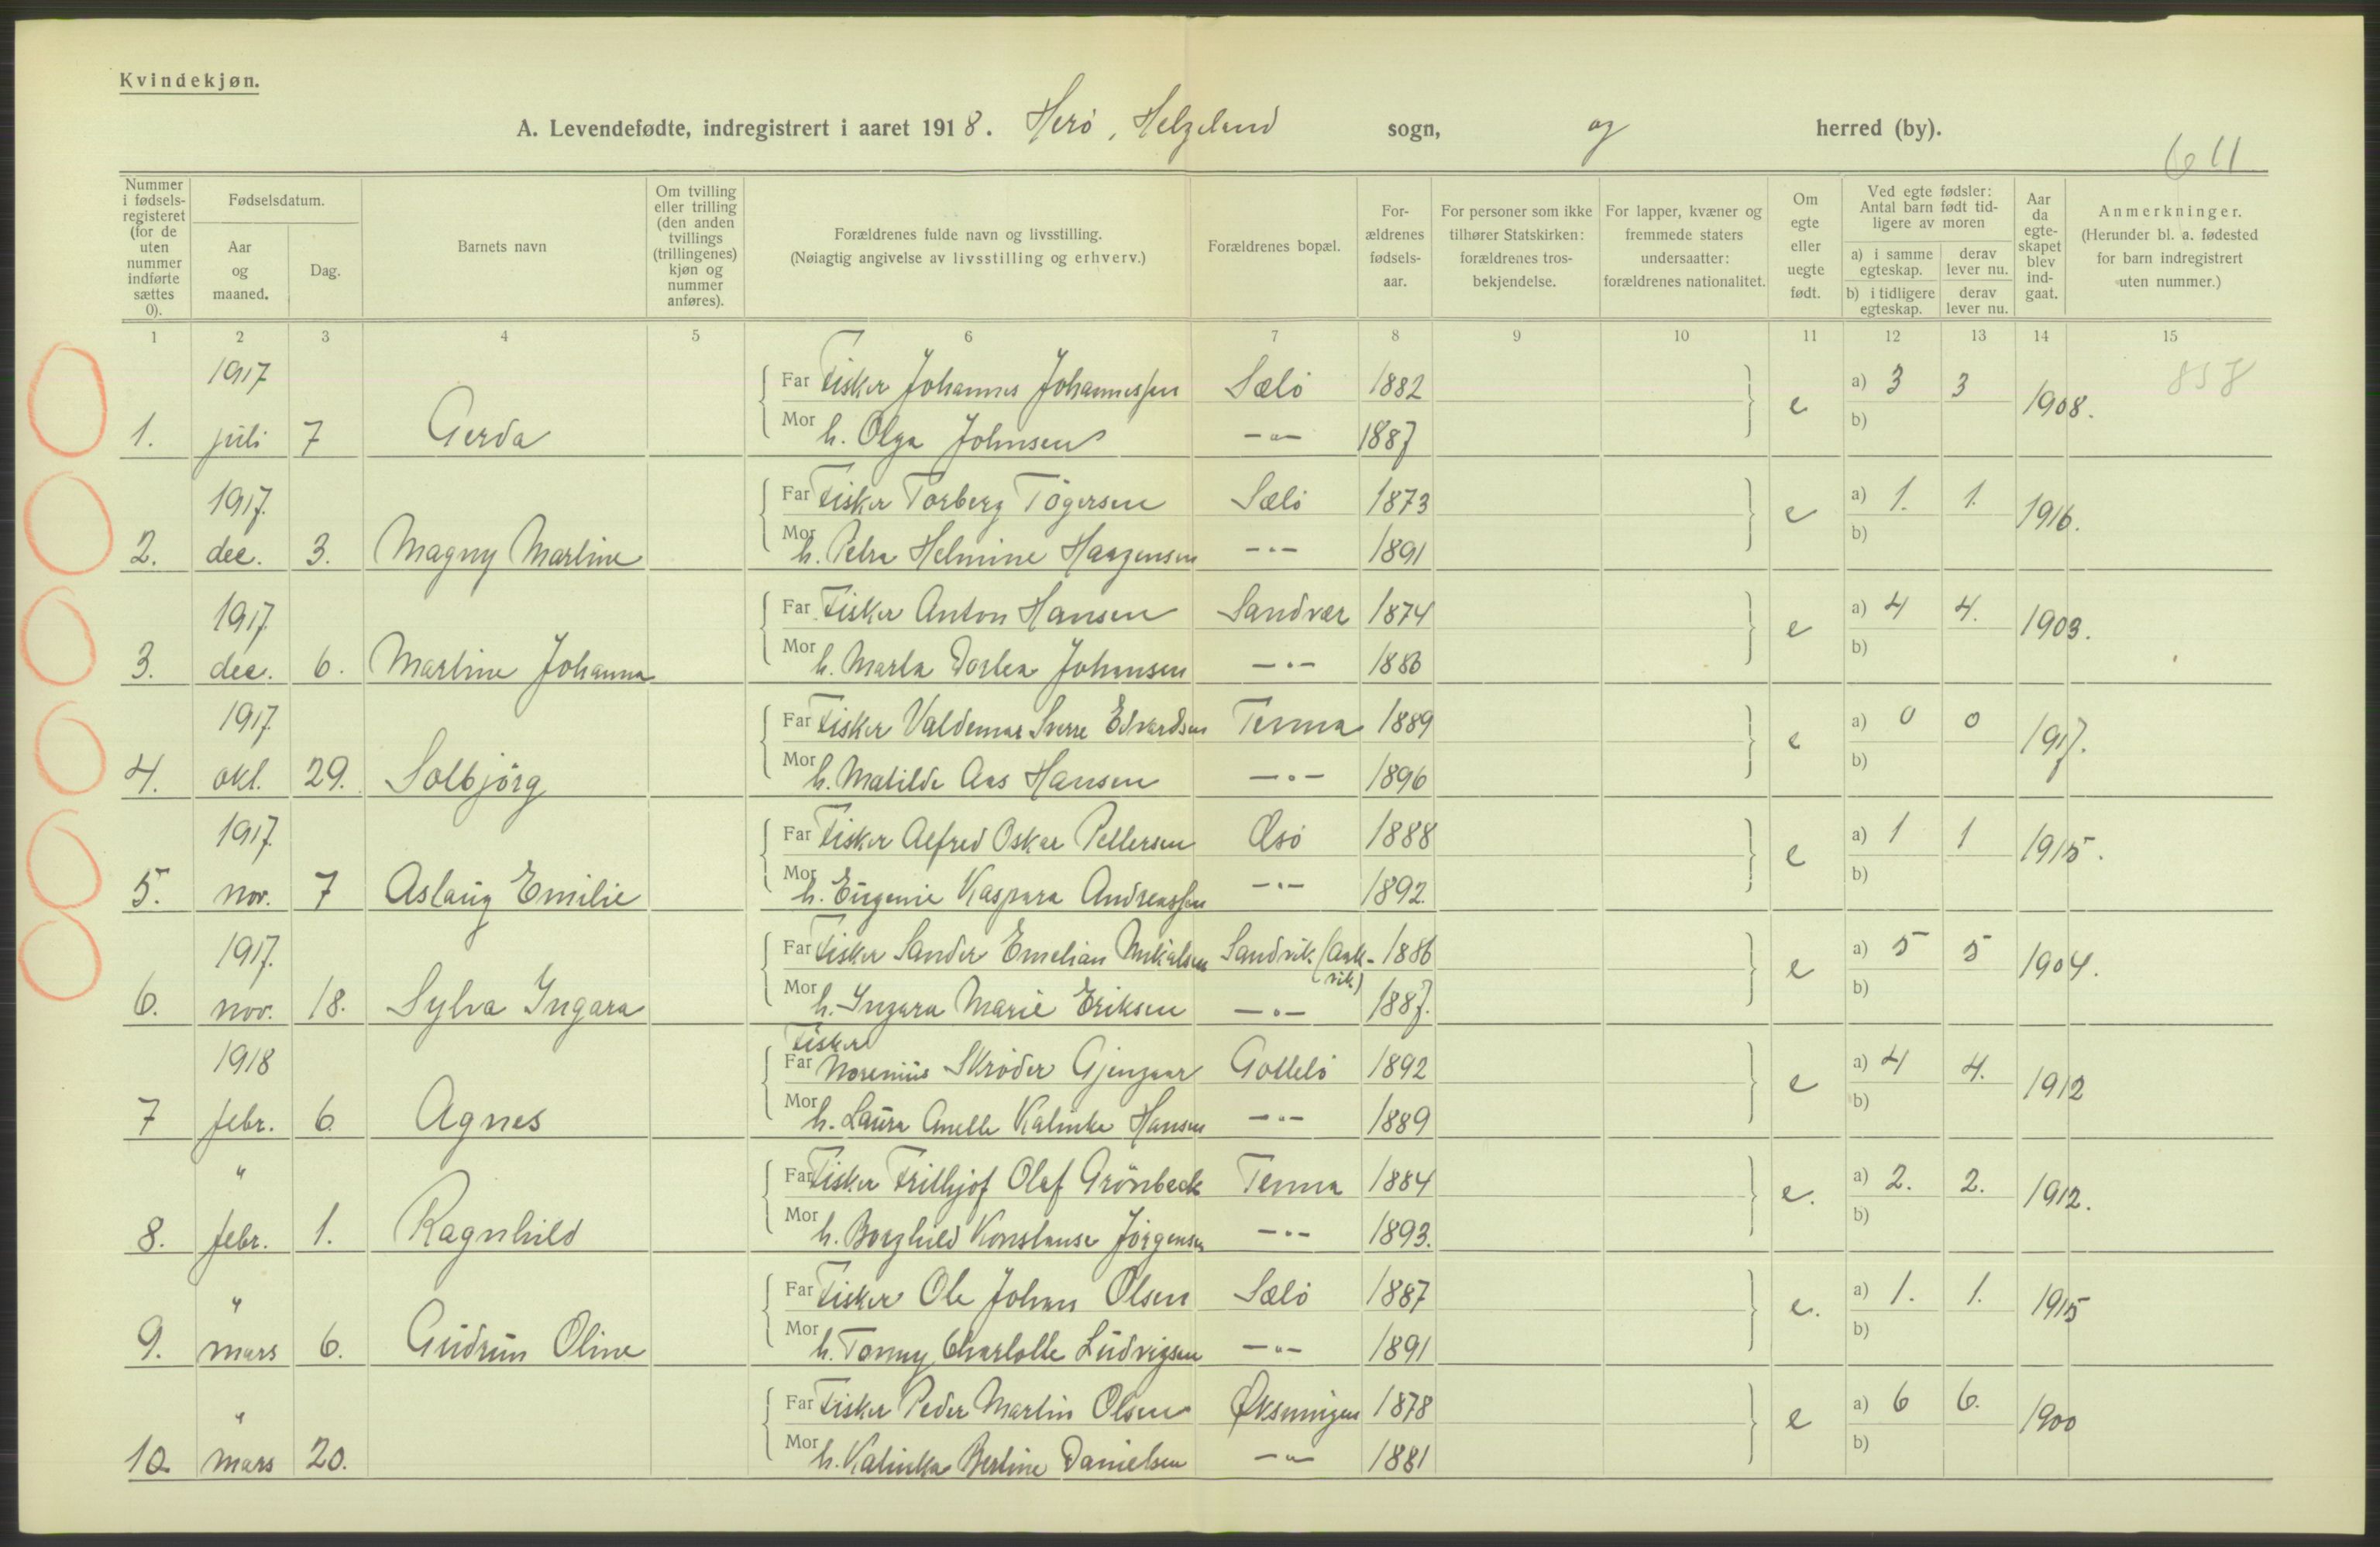 Kvindekjøn.
A. Levendefødte, indregistrert i aaret 1918. Herö, Helgeland sogn, og herred (by).
611
Nummer i fødsels-registeret (for de uten nummer indførte sættes 0).
Fødselsdatum.
Aar og maaned.
Dag.
Barnets navn
Om tvilling eller trilling (den anden tvillings (trillingenes) kjøn og nummer anføres).
Forældrenes fulde navn og livsstilling.
(Nøiagtig angivelse av livsstilling og erhverv.)
Forældrenes bopæl.
For-ældrenes fødsels-aar.
For personer som ikke tilhører Statskirken: forældrenes tros-bekjendelse.
For lapper, kvæner og fremmede staters undersaatter: forældrenes nationalitet.
Om egte eller uegte født.
Ved egte fødsler: Antal barn født tid-ligere av moren
a) i samme egteskap. derav lever nu.
b) i tidligere egteskap. derav lever nu.
Aar da egte-skapet blev ind-gaat.
Anmerkninger.
(Herunder bl. a. fødested for barn indregistrert uten nummer.)
1 2 3 4 5 6 7 8 9 10 11 12 13 14 15
1917 Far Fisker Johannes Johannessen Sælö 1882 a) 3 3 858
1. juli 7 Gerda Mor h. Olga Johnsen —"— 1887 e b) 1908.
1917. Far Fisker Torberg Tögersen Sælö 1873 a) 1. 1.
2. dec. 3. Magny Martine Mor h. Petra Helmine Haagensen —"— 1891 e b) 1916.
1917. Far Fisker Anton Hansen Sandvær 1874 a) 4 4.
3. dec. 6. Martine Johanna Mor h. Marta Dortea Johansen —"— 1886 e b) 1903.
1917. Far Fisker Valdemar Sverre Edvardsen Tenna 1889 a) 0 0
4. okt. 29. Solbjörg Mor h. Matilde Aas Hansen —"— 1896 e b) 1917.
1917. Far Fisker Alfred Oskar Pettersen Æsö 1888 a) 1 1
5. nov. 7 Aslaug Emilie Mor h. Eugenie Kaspara Andreassen —"— 1892. e b) 1915.
1917. Far Fisker Sander Emelian Mikalsen Sandvik (Aakvik) 1886 a) 5 5
6. nov. 18. Sylva Ingara Mor h. Ingara Marie Eriksen —"— 1887. e b) 1904.
Fisker
1918 Far Skröder Gjengaar Gottelö 1892 a) 4 4.
7 febr. 6 Agnes Mor h. Laura Anette Kalinka Hansen —"— 1889 e b) 1912
" Far Fisker Frithjof Olaf Grönbeck Tenna 1884 a) 2. 2.
8. febr. 1. Ragnhild Mor h. Borghild Konstanse Jörgensen —"— 1893. e. b) 1912.
" Far Fisker Ole Johan Olsen Sælö 1887 a) 1. 1.
9. mars 6. Gudrun Oline Mor h. Tomny Charlotte Ludvigsen —"— 1891 e. b) 1915
" Far Fisker Peder Martin Olsen Øksningen 1878 a) 6 6.
10. mars 20. Mor h. Kalinka Bertine Danielsen —"— 1881 e b) 1900